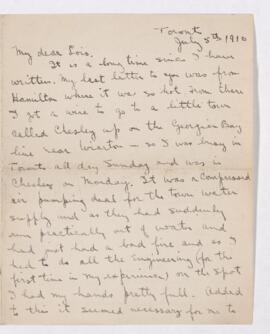 Toronto
July 5th 1910
My dear Lois,
It is a long time since I have
written. My last letter to you was from
Hamilton where it was so hot. From there
I got a wire to go to a little town
called Chesley up on the Georgian Bay
line near Wiarton – so I was busy in
Toronto all day Sunday and was in
Chesley on Monday. It was a Compressed
air pumping deal for the town water
supply and as they had suddenly
run practically out of water and
had just had a bad fire and as I
had to do all the Engineering (for the
first time in my experience) on the spot
I had my hands pretty full. Added
to this it seemed necessary for me to